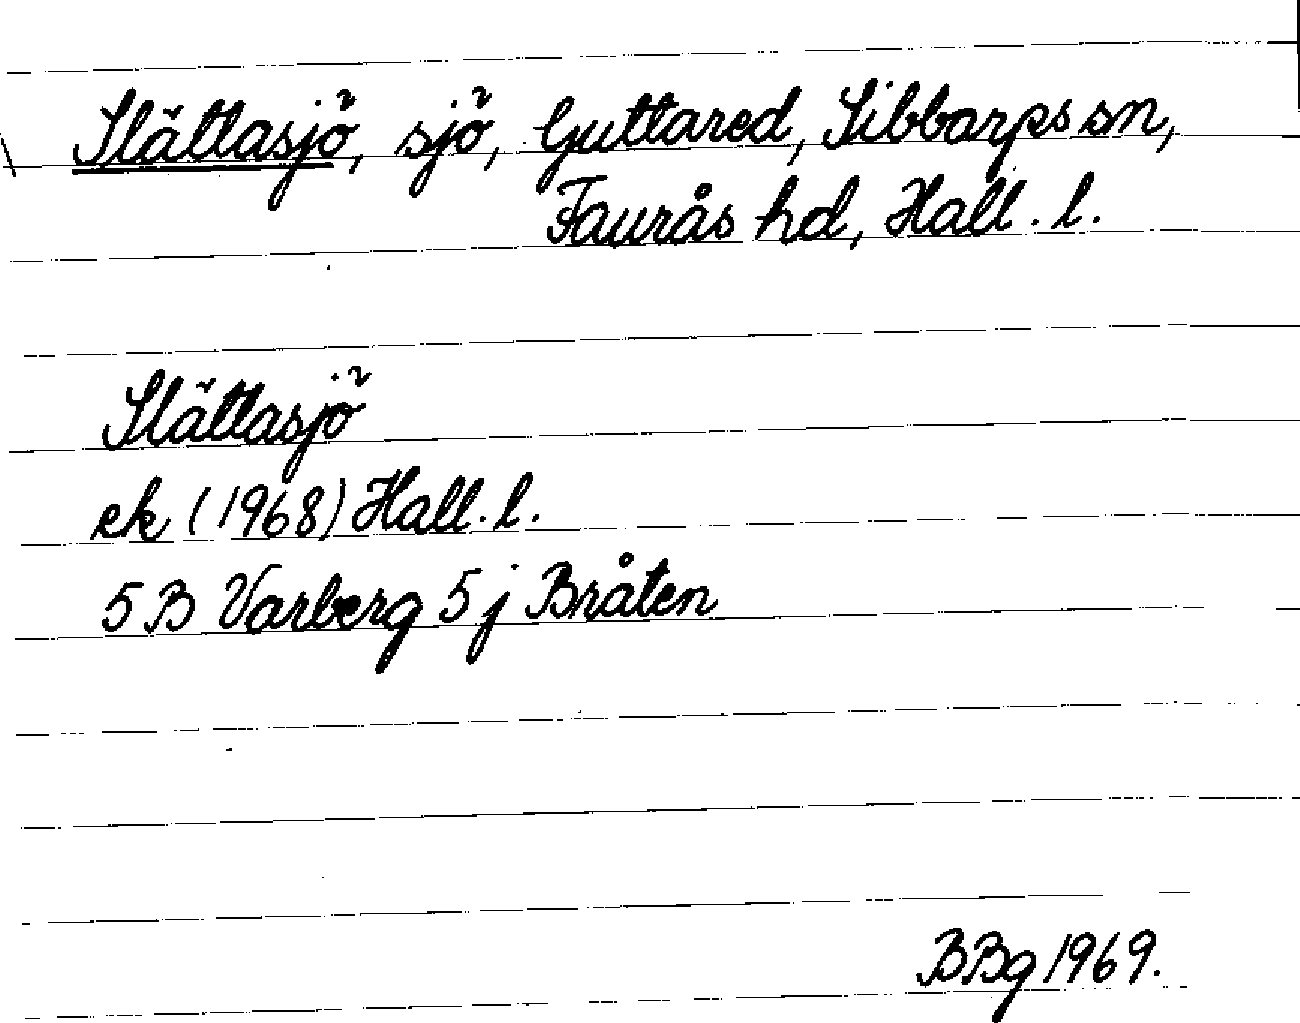 Slättasjö, sjö, Guttared, Sibbarps sn,
Faurås hd, Hall. l.
Slättasjö
ek (1968) Hall. l.
5B Varberg 5j Bråten
BBg 1969.